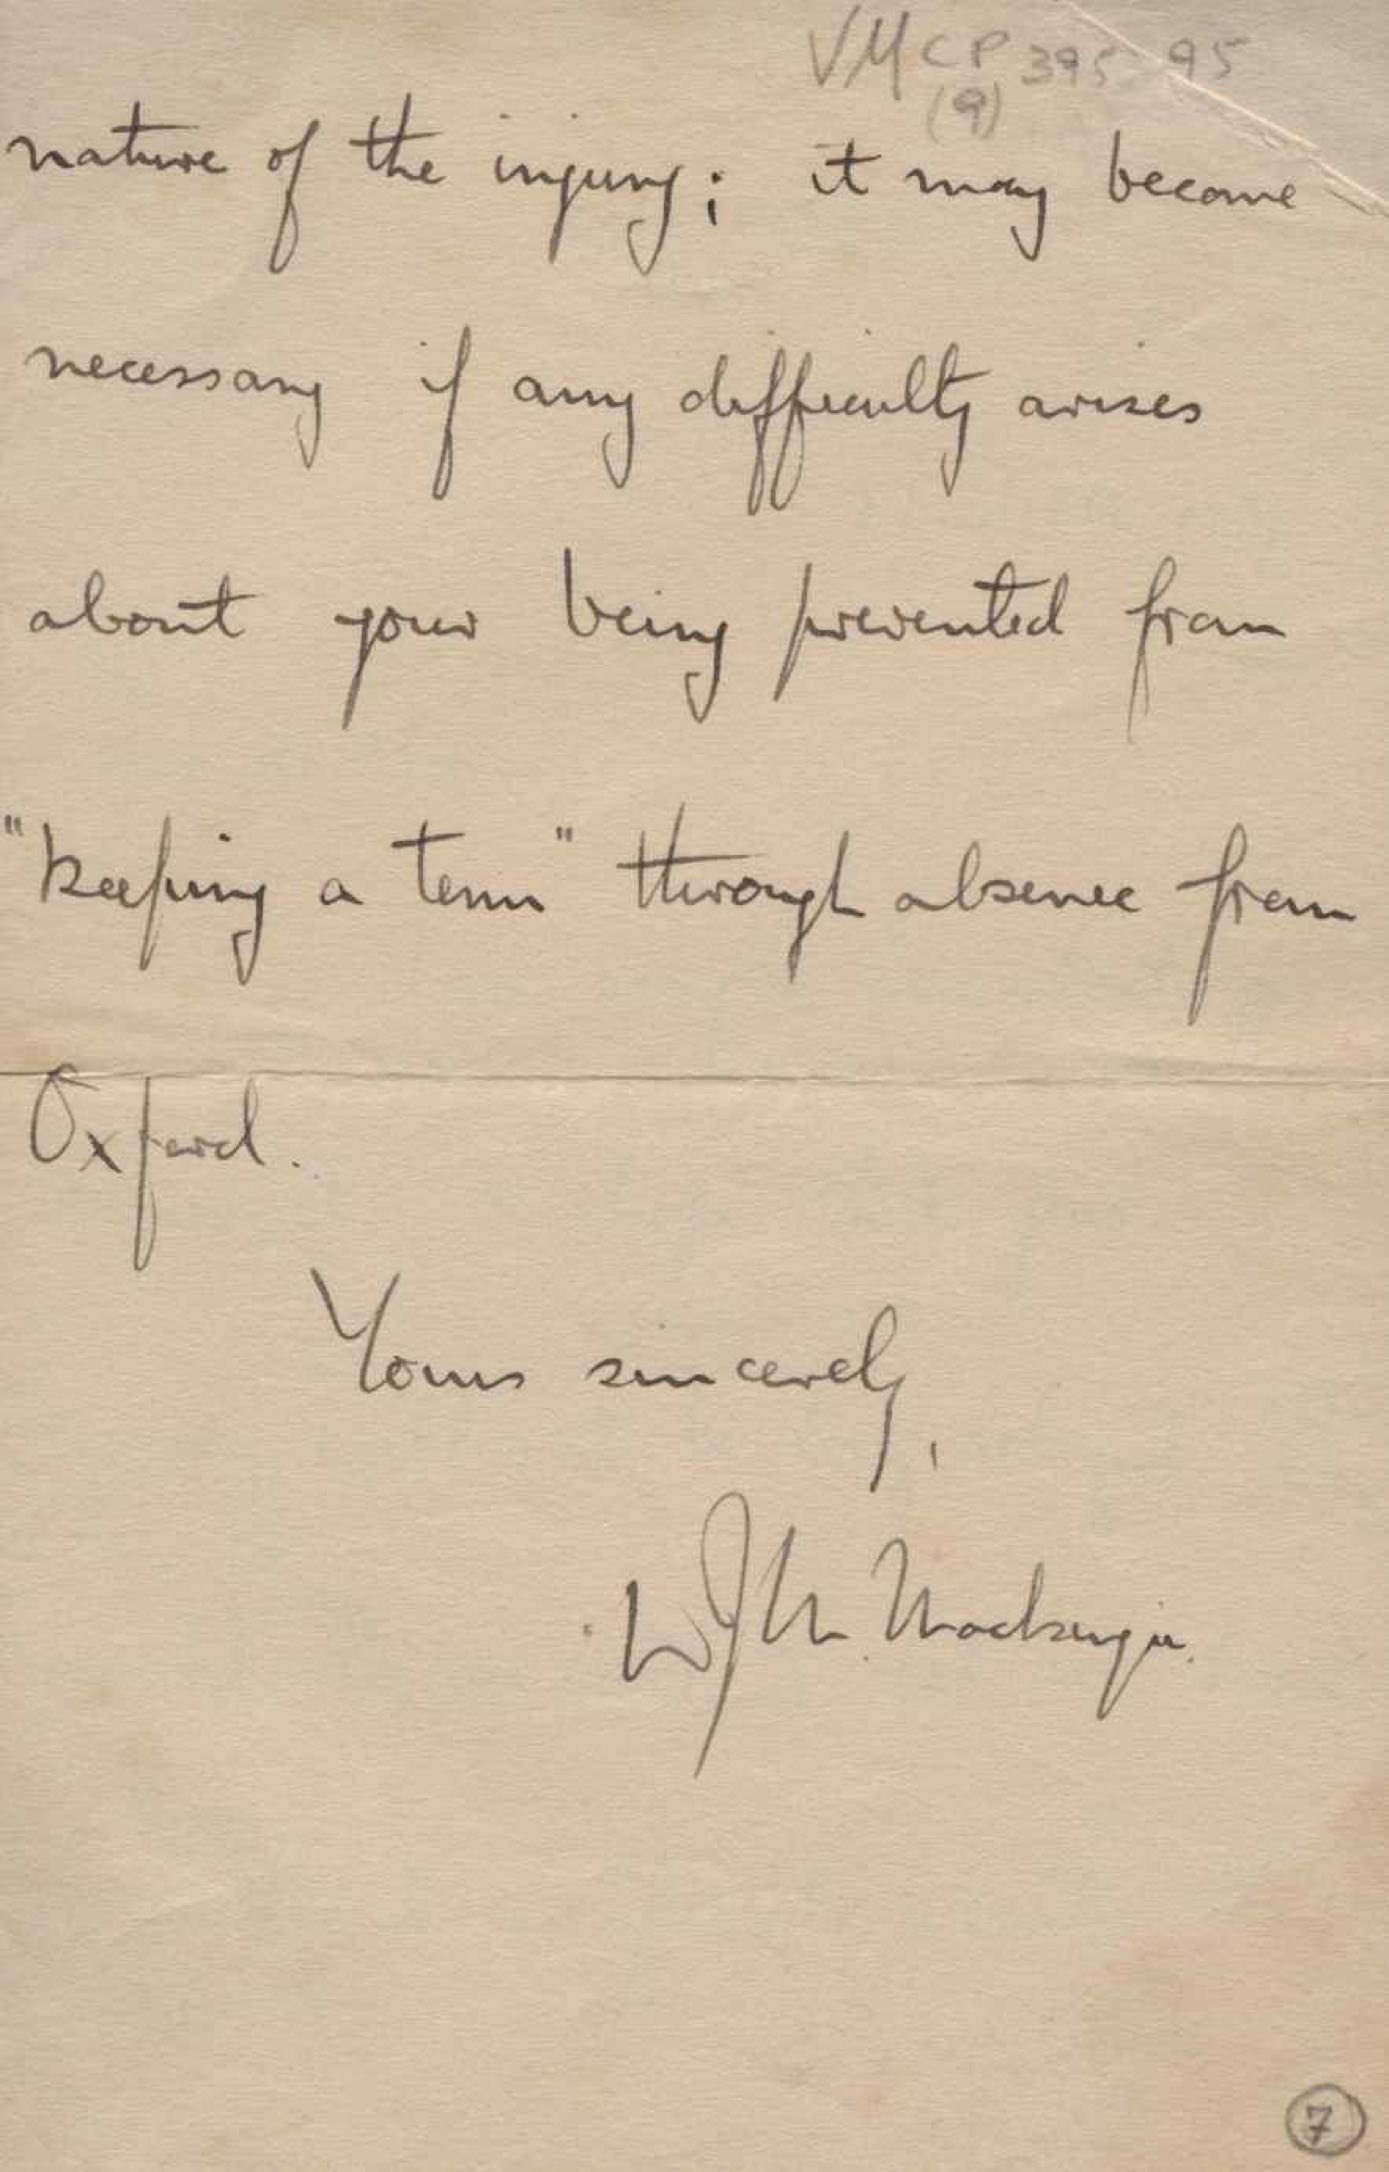 VMCP 395 95
(9)
nature of the injury; it may become
necessary if any difficulty arises
about your being prevented from
"keeping a term" through absence from
Oxford.
Yours sincerely,
W J M. Mackenzie.
7